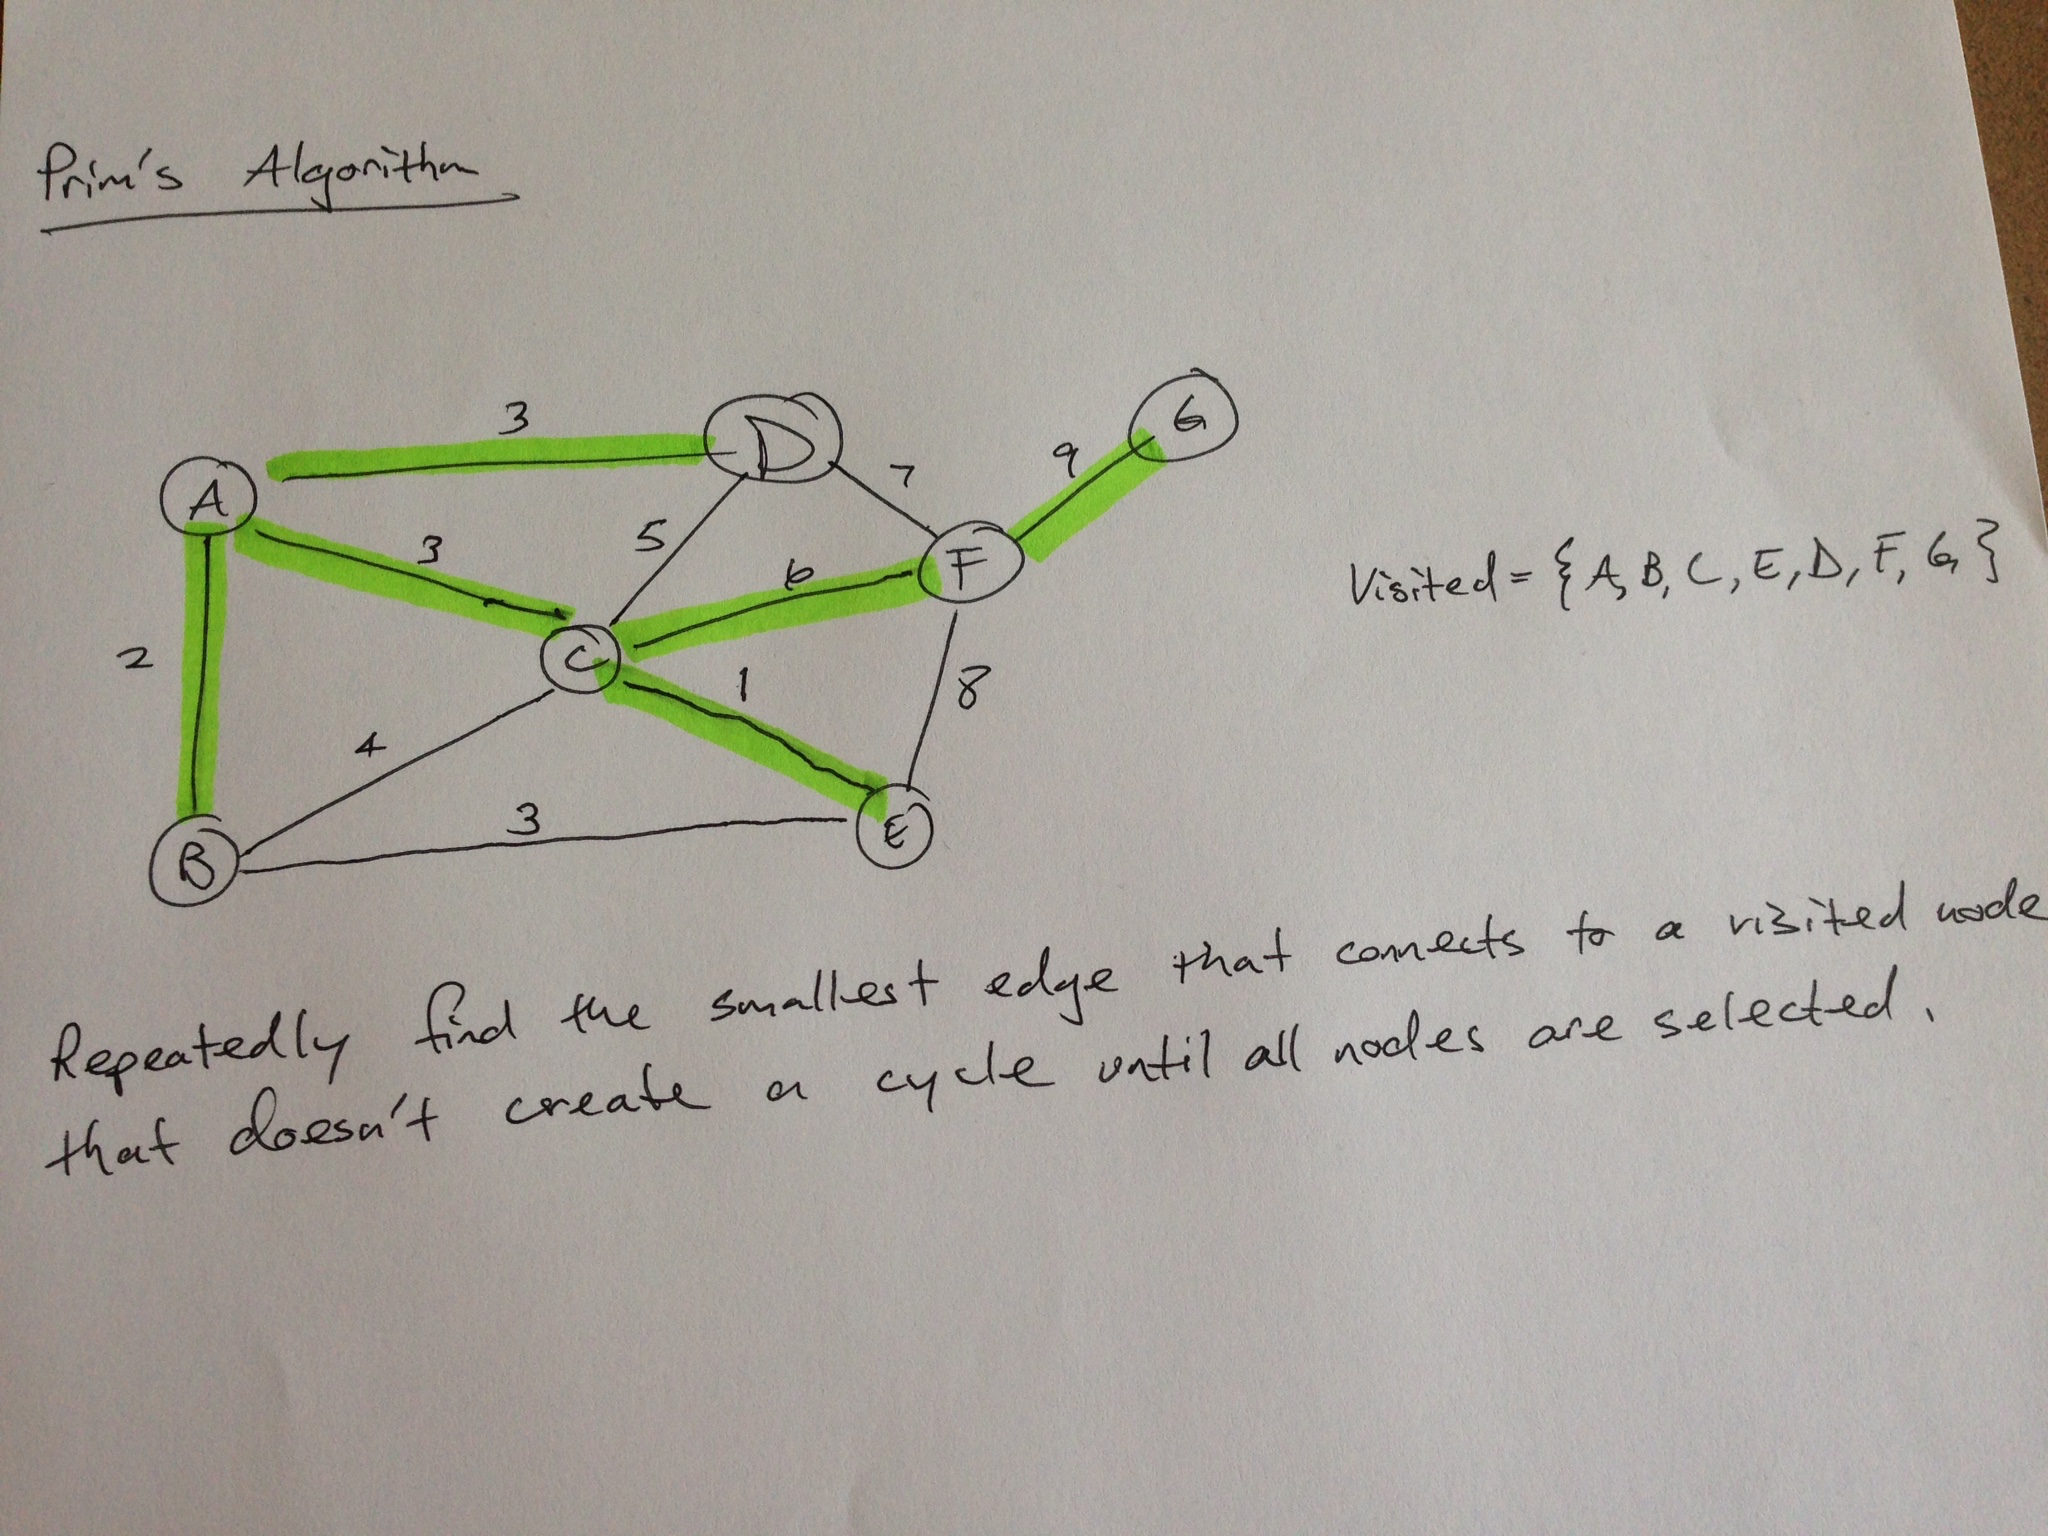 Prim's Algorithm
3
D
G
A
7
9
3
5
F
6
Visited = {A, B, C, E, D, F, G}
2
C
1
8
4
3
E
B
Repeatedly find the smallest edge that connects to a visited node
that doesn't create a cycle until all nodes are selected.